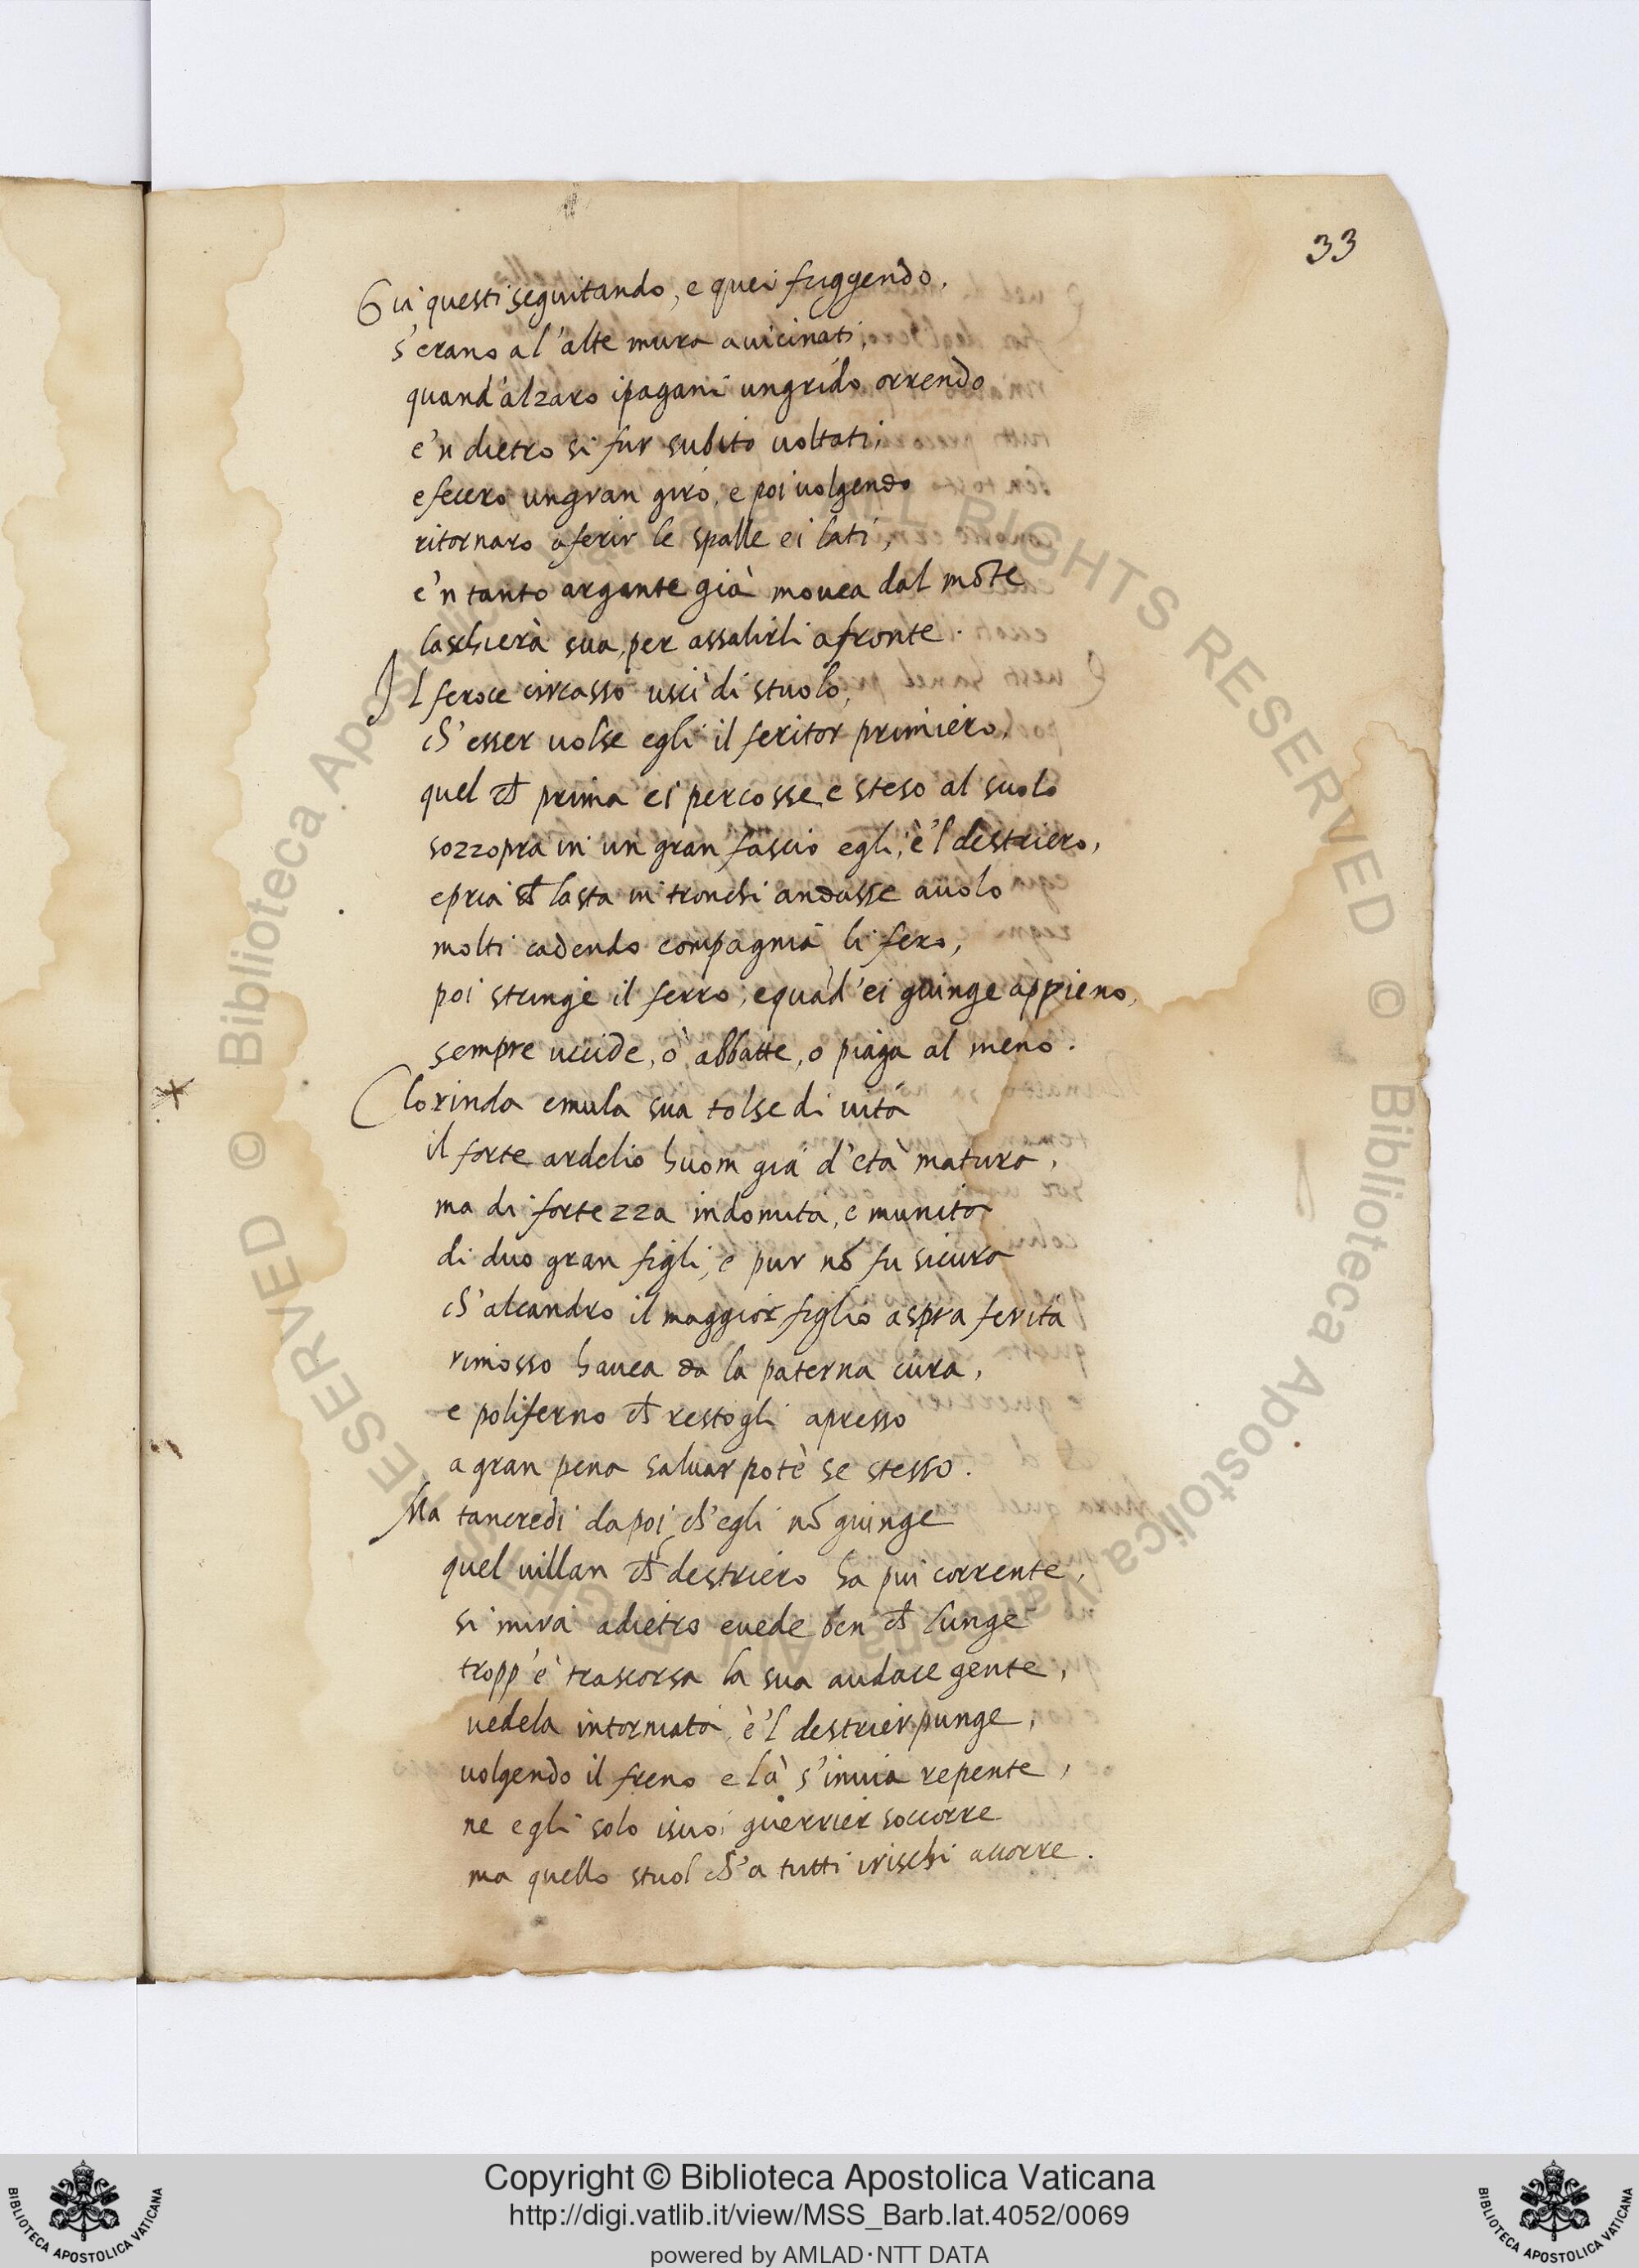 33
Gia questi seguitando, e quei fuggendo,
s'erano al'alte mura auicinati,
quand'alzaro ipagani ungrido orrendo
e'n dietro si fur subito uoltati;
efecero ungran giro, e poi uolgendo
ritornaro aferir le spalle ei lati,
e'n tanto argante già mouea dal mōte
laschierà sua, per assalirli afronte.
Il feroce circasso uscì di stuolo,
ch'esser uolse egli il feritor primiero,
quel ch̄ prima ei percosse, e steso al suolo
sozzopra in un gran fascio egli, è'l destriero,
epria ch̄ lasta in tronchi andasse auolo
molti cadendo compagnia li fero,
poi stringe il ferro, equād'ei giunge appieno,
sempre uccide, ò abbatte, o piaga al meno.
Clorinda emula sua tolse di uita
il forte ardelio huom già d'età matura,
ma di fortezza indomita, e munita
di duo gran figli, e pur nō fu sicura
ch'alcandro il maggior figlio aspra ferita
rimosso hauea da la paterna cura,
e poliferno ch̄ restogli apresso
a gran pena saluar potè se stesso.
Ma tancredi dapoi, ch'egli nō giunge
quel uillan ch̄ destriero ha piu corrente,
si mira adietro euede ben ch̄ lunge
tropp'è trascorsa la sua audace gente,
uedela intorniata, è'l destrier punge,
uolgendo il freno e là s'inuia repente,
ne egli solo isuoi guerrier soccorre
ma quello stuol ch'a tutti irischi accorre.
© Biblioteca Apostolica Vaticana ALL RIGHTS RESERVED © Biblioteca Apostolica Vaticana ALL RIGHTS RESERVED
BIBLIOTECA APOSTOLICA VATICANA
Copyright © Biblioteca Apostolica Vaticana
http://digi.vatlib.it/view/MSS_Barb.lat.4052/0069
powered by AMLAD·NTT DATA
BIBLIOTECA APOSTOLICA VATICANA